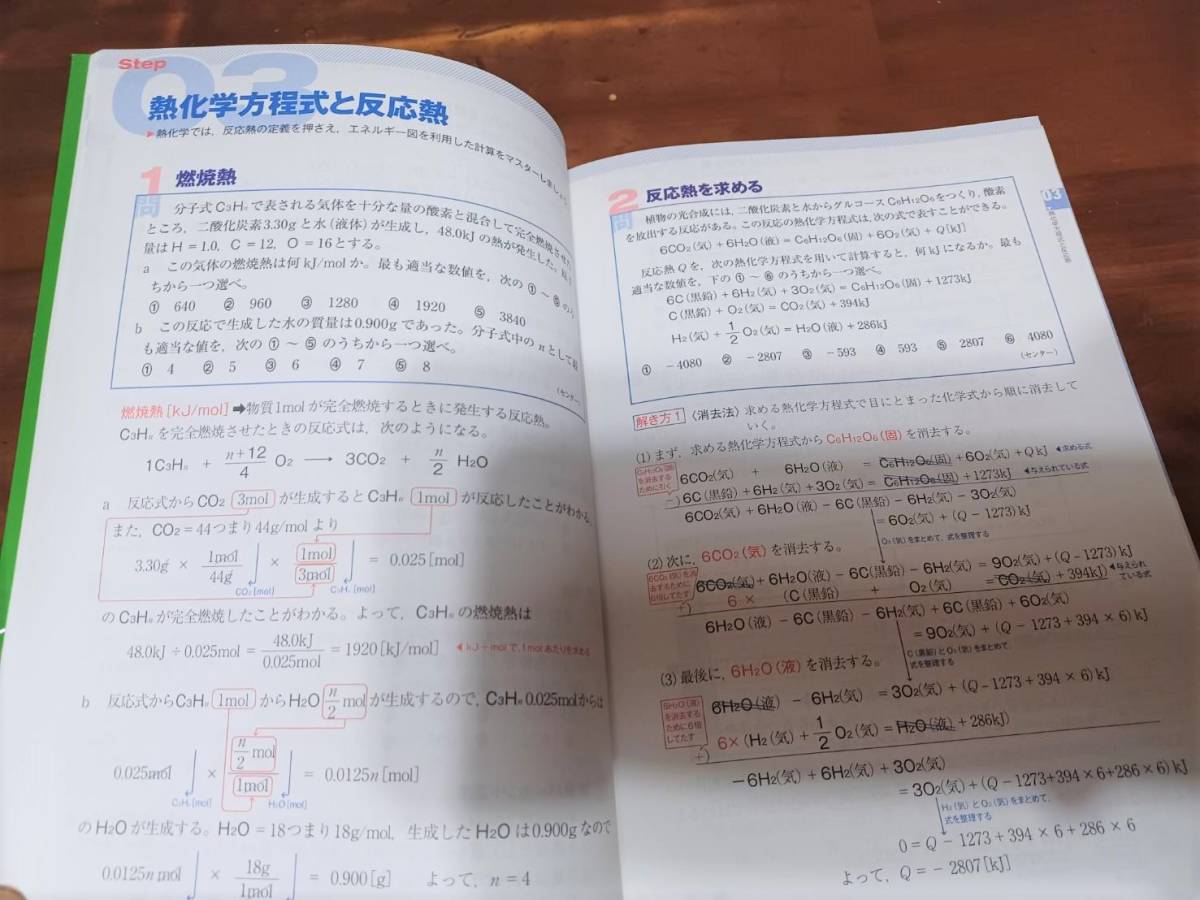 Step
03
熱化学方程式と反応熱
▶熱化学では,反応熱の定義を押さえ,エネルギー図を利用した計算をマスターしましょう
1
問
燃焼熱
分子式C3Hnで表される気体を十分な量の酸素と混合して完全燃焼させた
ところ,二酸化炭素3.30gと水(液体)が生成し,48.0kJの熱が発生した。
量はH=1.0, C=12, O=16とする。
a この気体の燃焼熱は何kJ/molか。最も適当な数値を,次の①〜⑤のう
ちから一つ選べ。
① 640 ② 960 ③ 1280 ④ 1920 ⑤ 3840
b この反応で生成した水の質量は0.900gであった。分子式中のnとして最
も適当な値を,次の①〜⑤のうちから一つ選べ。
① 4 ② 5 ③ 6 ④ 7 ⑤ 8
(センター)
燃焼熱[kJ/mol]➡物質1molが完全燃焼するときに発生する反応熱。
C3Hnを完全燃焼させたときの反応式は,次のようになる。
1C3Hn + n+12/4 O2 ⟶ 3CO2 + n/2 H2O
a 反応式からCO2 3mol が生成するとC3Hn 1mol が反応したことがわかる。
また,CO2=44つまり44g/molより
3.30g × 1mol/44g × 1mol/3mol = 0.025[mol]
CO2[mol] C3Hn[mol]
のC3Hnが完全燃焼したことがわかる。よって,C3Hnの燃焼熱は
48.0kJ÷0.025mol = 48.0kJ/0.025mol = 1920[kJ/mol] ◀kJ÷molで,1molあたりを求める
b 反応式からC3Hn 1mol からH2O n/2 mol が生成するので,C3Hn 0.025molからは
0.025mol × n/2 mol/1mol = 0.0125n[mol]
C3Hn[mol] H2O[mol]
のH2Oが生成する。H2O=18つまり18g/mol,生成したH2Oは0.900gなので
0.0125n mol × 18g/1mol = 0.900[g] よって,n=4
2
問
反応熱を求める
植物の光合成には,二酸化炭素と水からグルコースC6H12O6をつくり,酸素
を放出する反応がある。この反応の熱化学方程式は,次の式で表すことができる。
6CO2(気)+6H2O(液)=C6H12O6(固)+6O2(気)+Q[kJ]
反応熱Qを,次の熱化学方程式を用いて計算すると,何kJになるか。最も
適当な数値を,下の①〜⑥のうちから一つ選べ。
6C(黒鉛)+6H2(気)+3O2(気)=C6H12O6(固)+1273kJ
C(黒鉛)+O2(気)=CO2(気)+394kJ
H2(気)+1/2 O2(気)=H2O(液)+286kJ
① −4080 ② −2807 ③ −593 ④ 593 ⑤ 2807 ⑥ 4080
(センター)
03
熱化学方程式と反応熱
解き方1 〈消去法〉 求める熱化学方程式で目にとまった化学式から順に消去して
いく。
(1) まず,求める熱化学方程式からC6H12O6(固)を消去する。
C6H12O6(固)
を消去する
ために引く
6CO2(気) + 6H2O(液) = C6H12O6(固)+6O2(気)+QkJ ◀求める式
−) 6C(黒鉛)+6H2(気)+3O2(気)=C6H12O6(固)+1273kJ ◀与えられている式
6CO2(気)+6H2O(液)−6C(黒鉛)−6H2(気)−3O2(気)
=6O2(気)+(Q−1273)kJ
O2(気)をまとめて,式を整理する
(2) 次に,6CO2(気)を消去する。
6CO2(気)を消
去するために
6倍してたす
6CO2(気)+6H2O(液)−6C(黒鉛)−6H2(気)=9O2(気)+(Q−1273)kJ
+) 6×(C(黒鉛) + O2(気) =CO2(気)+394kJ) ◀与えられ
ている式
6H2O(液)−6C(黒鉛)−6H2(気)+6C(黒鉛)+6O2(気)
=9O2(気)+(Q−1273+394×6)kJ
C(黒鉛)とO2(気)をまとめて,
式を整理する
(3) 最後に,6H2O(液)を消去する。
6H2O(液)
を消去する
ために6倍
してたす
6H2O(液) − 6H2(気) = 3O2(気)+(Q−1273+394×6)kJ
+) 6×(H2(気)+1/2 O2(気)=H2O(液)+286kJ)
−6H2(気)+6H2(気)+3O2(気)
=3O2(気)+(Q−1273+394×6+286×6)kJ
H2(気)とO2(気)をまとめて,
式を整理する
0=Q−1273+394×6+286×6
よって,Q=−2807[kJ]